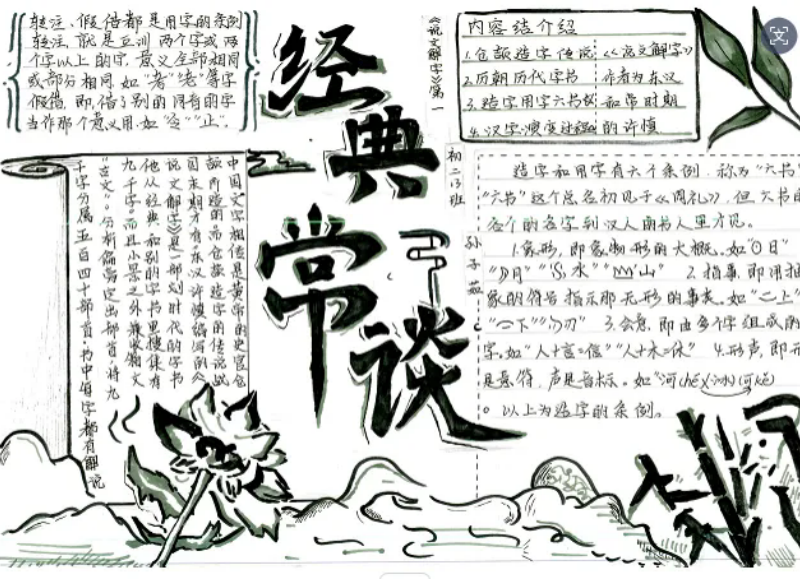 转注、假借都是用字的条例
转注,就是互训两个字或两
个字以上的字,意义全部相同
或部分相同,如"者""老"等字
假借,即借了别的同有的字
当作那个意义用.如"令""止"。
经典常谈
《说文解字》第一
初二13班
孙子茹
内容结介绍
1.仓颉造字传说
2.历朝历代字书
3.造字用字六书
4.汉字演变过程
《说文解字》
作者为东汉
和帝时期
的许慎
造字和用字有六个条例,称为"六书"
"六书"这个总名初见于《周礼》,但六书的
各个的名字到汉人的书人里才见。
1.象形,即象物形的大概。如"日"
"月""水""山" 2.指事,即用抽
象的符号指示那无形的事类。如"二上"
"一下""刃" 3.会意,即由多个字组成的
字,如"人+言=信""人+木=休" 4.形声,即形
是意符,声是音标。如"河
。以上为造字的条例。
中国文字相传是黄帝的史官仓
颉所造的而仓颉造字的传说战
国末期才有东汉许慎编写的《
说文解字》是一部划时代的字书
他从经典和别的字书里搜集有
九千字。而且小篆之外兼收籀文
"古文"。分析偏旁定出部首,将九
千字分属五百四十部首.书中每字都有解说